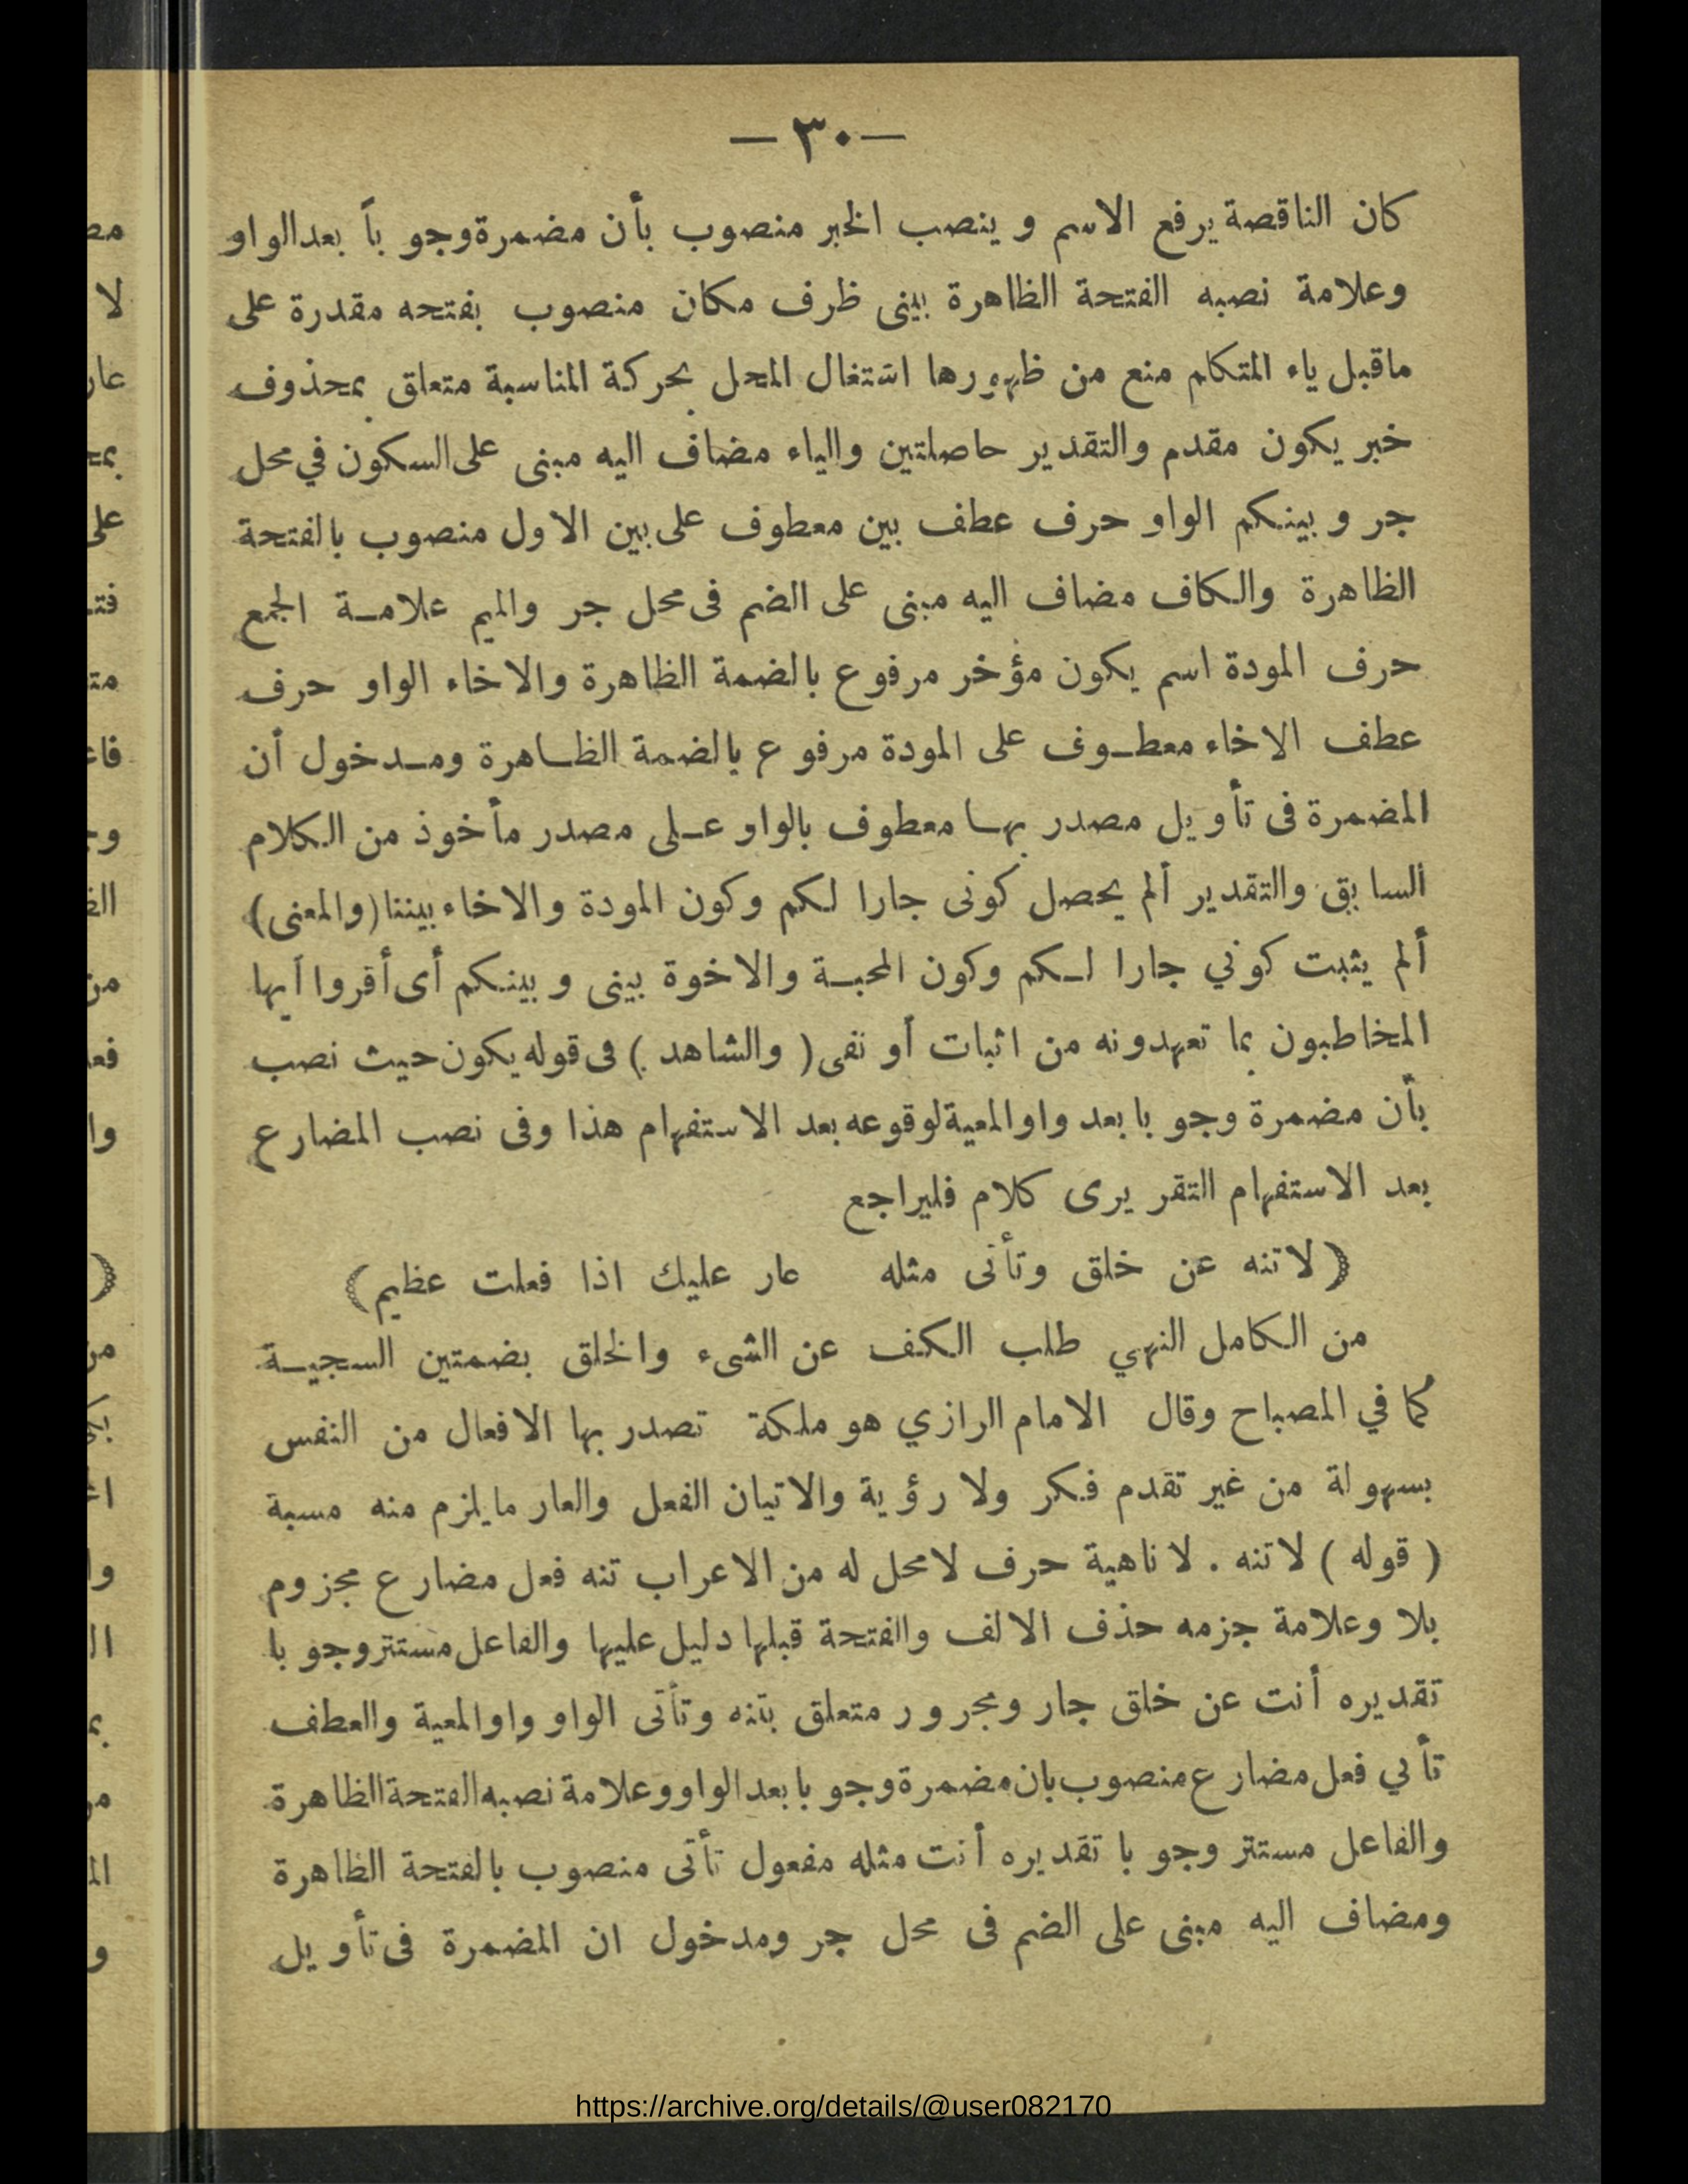 — ٣٠ —
كان الناقصة يرفع الاسم و ينصب الخبر منصوب بأن مضمرة وجو باً بعد الواو
وعلامة نصبه الفتحة الظاهرة بينى ظرف مكان منصوب بفتحه مقدرة على
ماقبل ياء المتكلم منع من ظهورها اشتغال المحل بحركة المناسبة متعلق بمحذوف
خبر يكون مقدم والتقدير حاصلتين والياء مضاف اليه مبنى على السكون في محل
جر و بينكم الواو حرف عطف بين معطوف على بين الاول منصوب بالفتحة
الظاهرة والكاف مضاف اليه مبنى على الضم فى محل جر والميم علامة الجمع
حرف المودة اسم يكون مؤخر مرفوع بالضمة الظاهرة والاخاء الواو حرف
عطف الاخاء معطوف على المودة مرفوع بالضمة الظاهرة ومدخول أن
المضمرة فى تأويل مصدر بها معطوف بالواو على مصدر مأخوذ من الكلام
السابق والتقدير ألم يحصل كونى جارا لكم وكون المودة والاخاء بيننا (والمعنى)
ألم يثبت كوني جارا لكم وكون المحبة والاخوة بينى و بينكم أى أقروا أيها
المخاطبون بما تعهدونه من اثبات أو نفى ( والشاهد ) فى قوله يكون حيث نصب
بأن مضمرة وجو با بعد واو المعية لوقوعه بعد الاستفهام هذا وفى نصب المضارع
بعد الاستفهام التقريرى كلام فليراجع
(لا تنه عن خلق وتأتى مثله عار عليك اذا فعلت عظيم)
من الكامل النهي طلب الكف عن الشىء والخلق بضمتين السجية
كما في المصباح وقال الامام الرازي هو ملكة تصدر بها الافعال من النفس
بسهولة من غير تقدم فكر ولا رؤية والاتيان الفعل والعار مايلزم منه مسبة
( قوله ) لا تنه . لا ناهية حرف لامحل له من الاعراب تنه فعل مضارع مجزوم
بلا وعلامة جزمه حذف الالف والفتحة قبلها دليل عليها والفاعل مستتر وجو با
تقديره أنت عن خلق جار ومجرور متعلق بتنه وتأتى الواو واو المعية والعطف
تأتي فعل مضارع منصوب بان مضمرة وجو با بعد الواو وعلامة نصبه الفتحة الظاهرة
والفاعل مستتر وجو با تقديره أنت مثله مفعول تأتى منصوب بالفتحة الظاهرة
ومضاف اليه مبنى على الضم فى محل جر ومدخول ان المضمرة فى تأويل
https://archive.org/details/@user082170